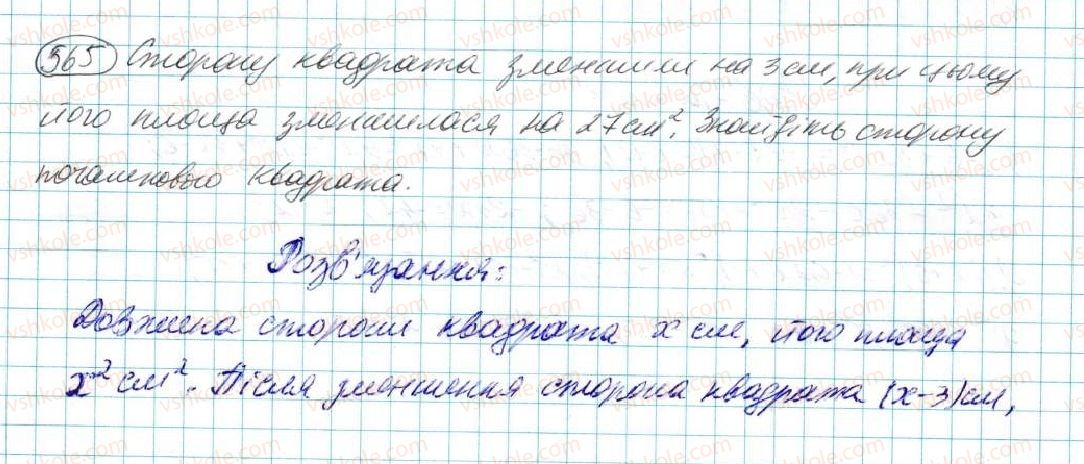 565 Сторону квадрата зменшили на 3 см, при цьому
його площа зменшилася на 27 см². Знайдіть сторону
початкового квадрата.
Розв'язання:
Довжина сторони квадрата x см, його площа
x² см². Після зменшення сторона квадрата (x-3) см,